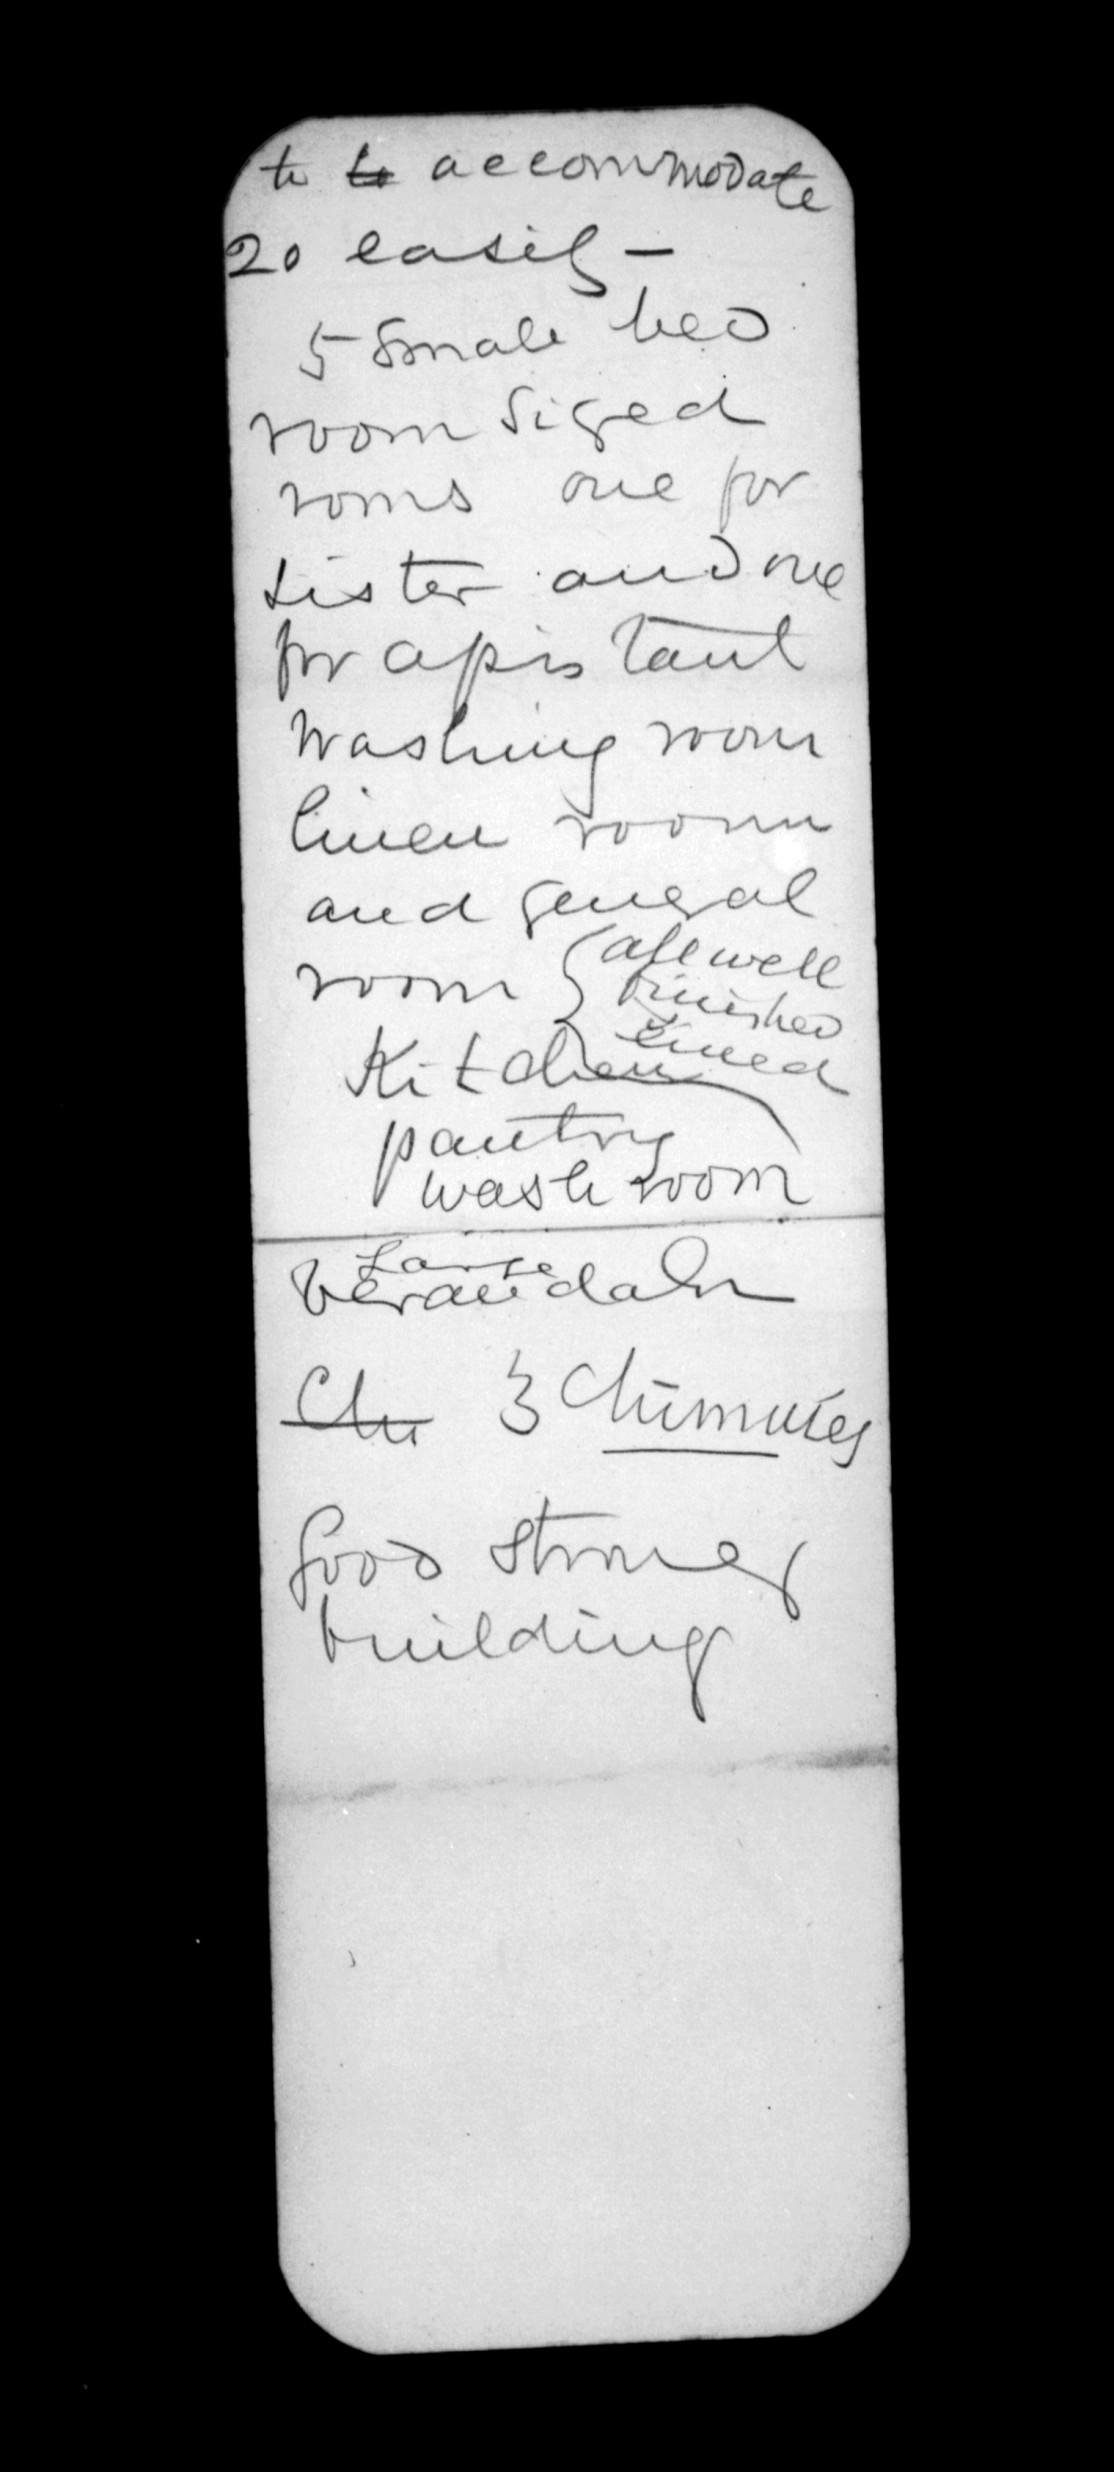 to to accommodate
20 easily –
5 small bed
room sized
roms one for
sister and one
for assistant
Washing room
linen room
and general
room { all well
finished
lined
Kitchen
pantry
wash room
Large
Verandah
Chi 3 Chimnies
Good strong
building